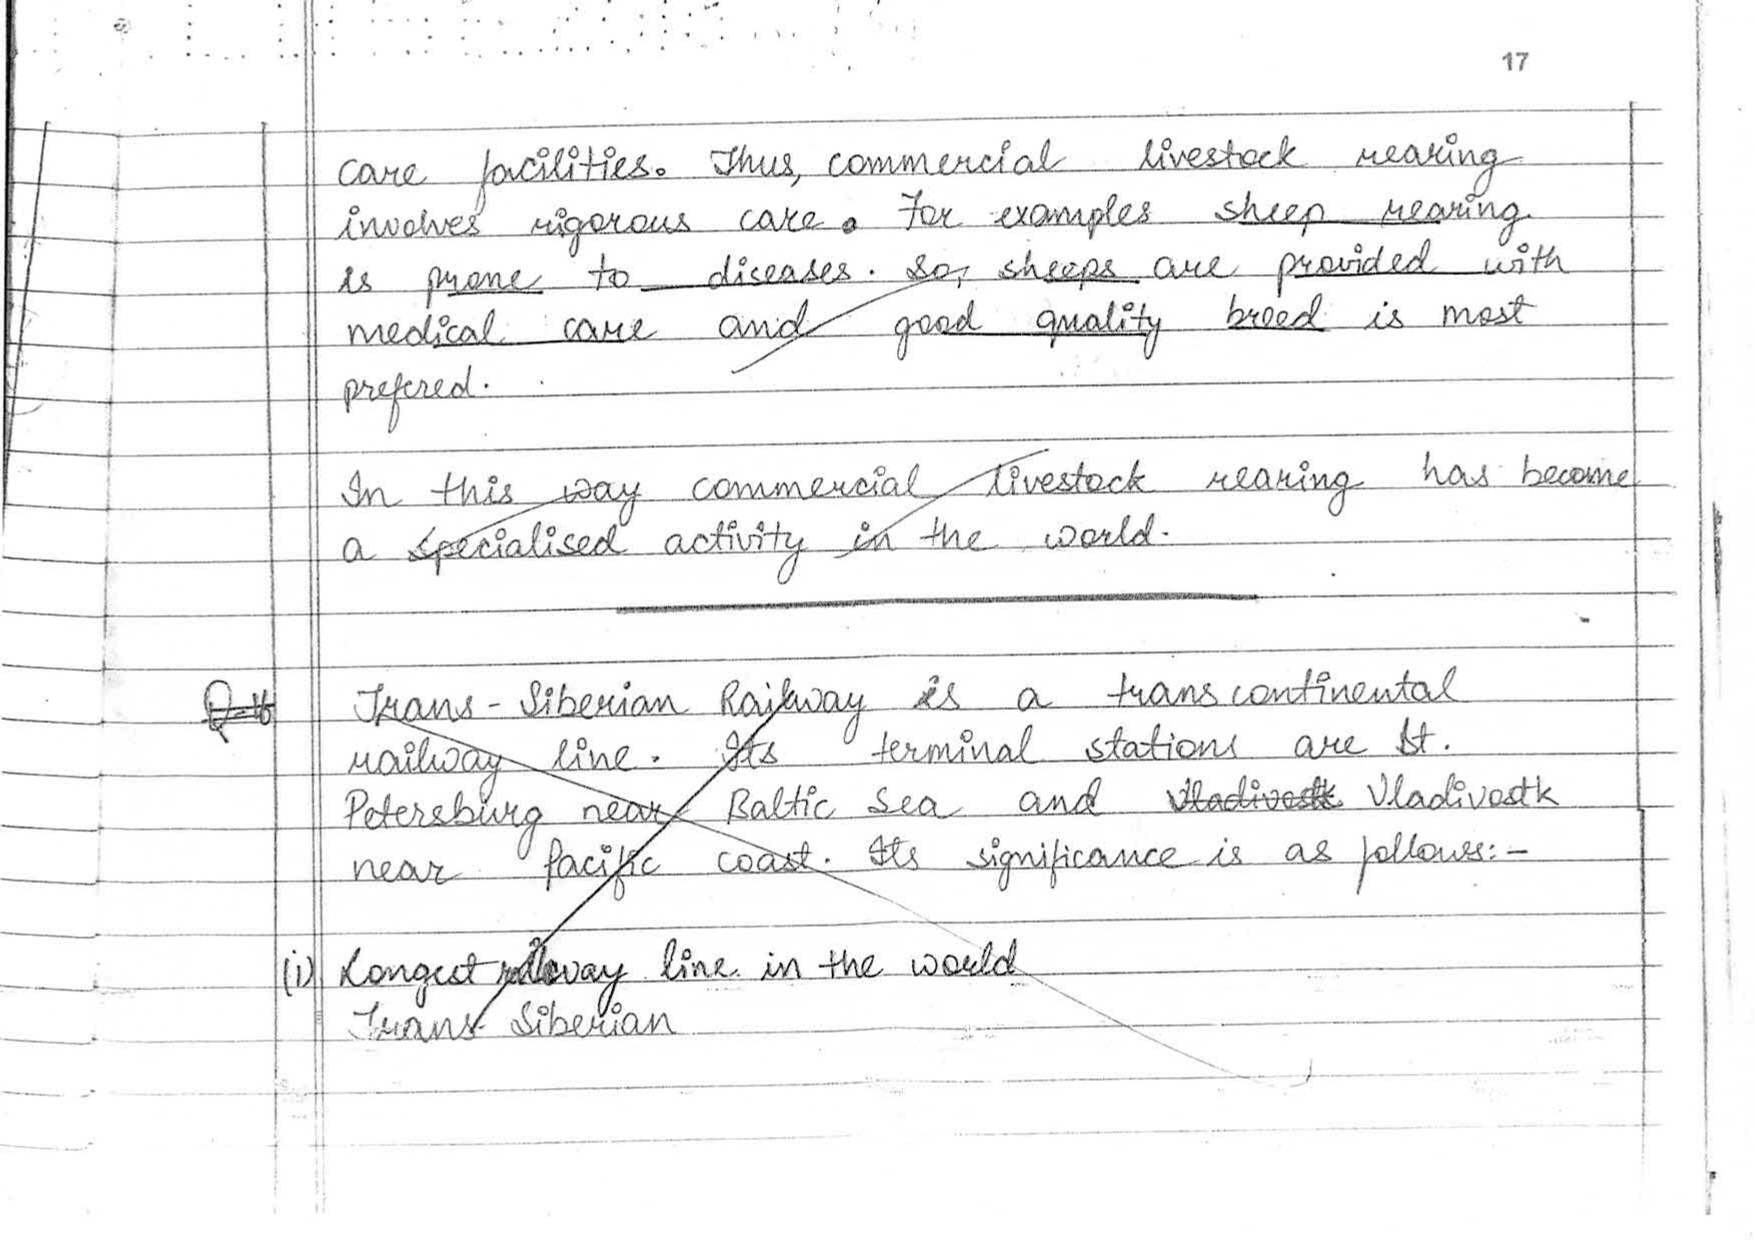 17
care facilities. Thus, commercial livestock rearing
involves rigorous care. For examples sheep rearing
is prone to diseases. So, sheeps are provided with
medical care and good quality breed is most
prefered.
In this way commercial livestock rearing has become
a specialised activity in the world.
Q-16 Trans-Siberian Railway is a trans continental
railway line. Its terminal stations are St.
Petersburg near Baltic Sea and Vladivostk Vladivostk
near Pacific coast. Its significance is as follows:-
(i) Longest railway line in the world
Trans-Siberian